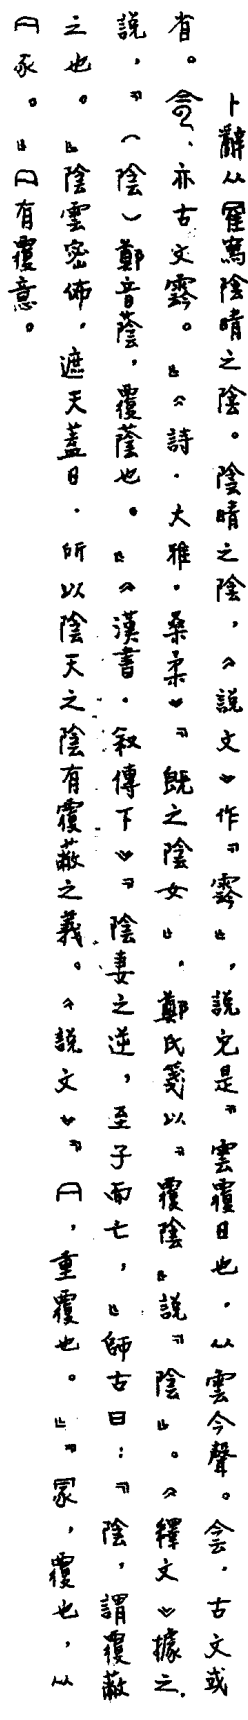 卜辭从隹爲陰晴之陰。陰晴之陰，《說文》作『霒』，說它是『雲覆日也，从雲今聲。侌，古文或
省。𠆭、亦古文霒。』《詩·大雅·桑柔》『旣之陰女』，鄭氏箋以『覆陰』說『陰』。《釋文》據之，
說，『（陰）鄭音蔭，覆蔭也。』《漢書·叙傳下》『陰妻之逆，至子而亡，』師古曰：『陰，謂覆蔽
之也。』陰雲密佈，遮天蓋日，所以陰天之陰有覆蔽之義。《說文》『冃，重覆也。』『冡，覆也，从
冃豕。』冃有覆意。